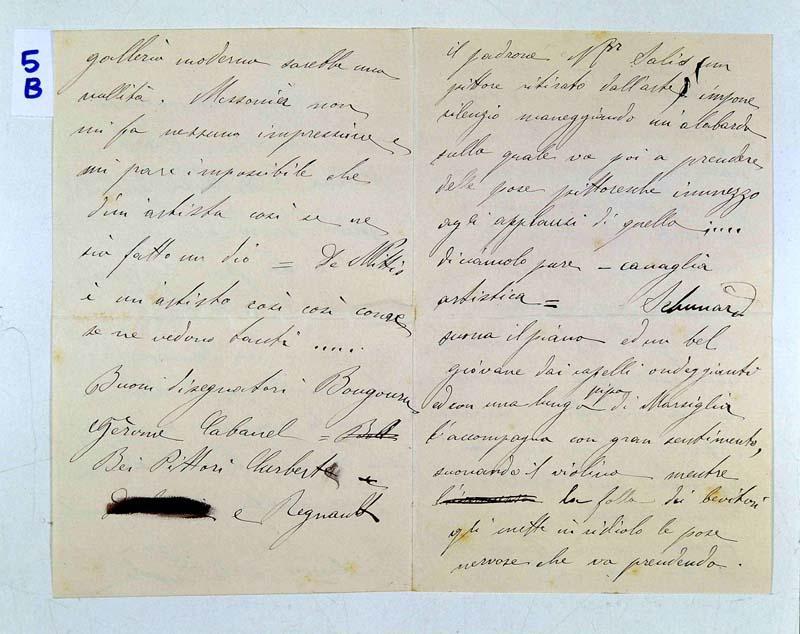 5
B
galleria moderna sarebbe una
nullità. Messonièr non
mi fa nessuna impressione e
mi pare impossibile che
d'un artista così se ne
sia fatto un dio = De Nittis
è un artista così così come
se ne vedono tanti .....
Buoni disegnatori Bougourau
Gérome Cabanel =
Bei Pittori Curbert e
e Regnault
il padrone Mr Salis (un
pittore ritirato dall'arte) impone
silenzio maneggiando un'alabarda
sulla quale va poi a prendere
delle pose pittoresche in mezzo
agli applausi di quella .....
diciamolo pure - canaglia
artistica = Schunard
suona il piano ed un bel
giovane dai capelli ondeggianti
ed con una lunga pipa di Marsiglia
l'accompagna con gran sentimento,
suonando il violino mentre
la folla dei bevitori
gli mette in ridicolo le pose
nervose che va prendendo.